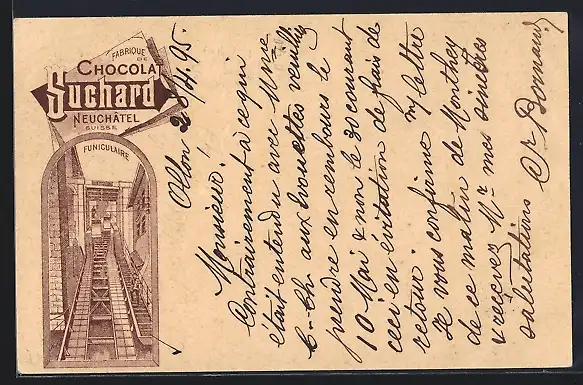 FABRIQUE
DE
CHOCOLA
Suchard
NEUCHÂTEL
SUISSE
FUNICULAIRE
Ollon 28/4/95.
Monsieur!
Contrairement à ce qui
était entendu avec Mme
C. Ch aux Brouettes veuillez
prendre en rembours le
10 Mai & non le 30 courant
ceci en évitation de frais de
retour.
Je vous confirme m/ lettre
de ce matin de Monthey
& recevez Mr mes sincères
salutations